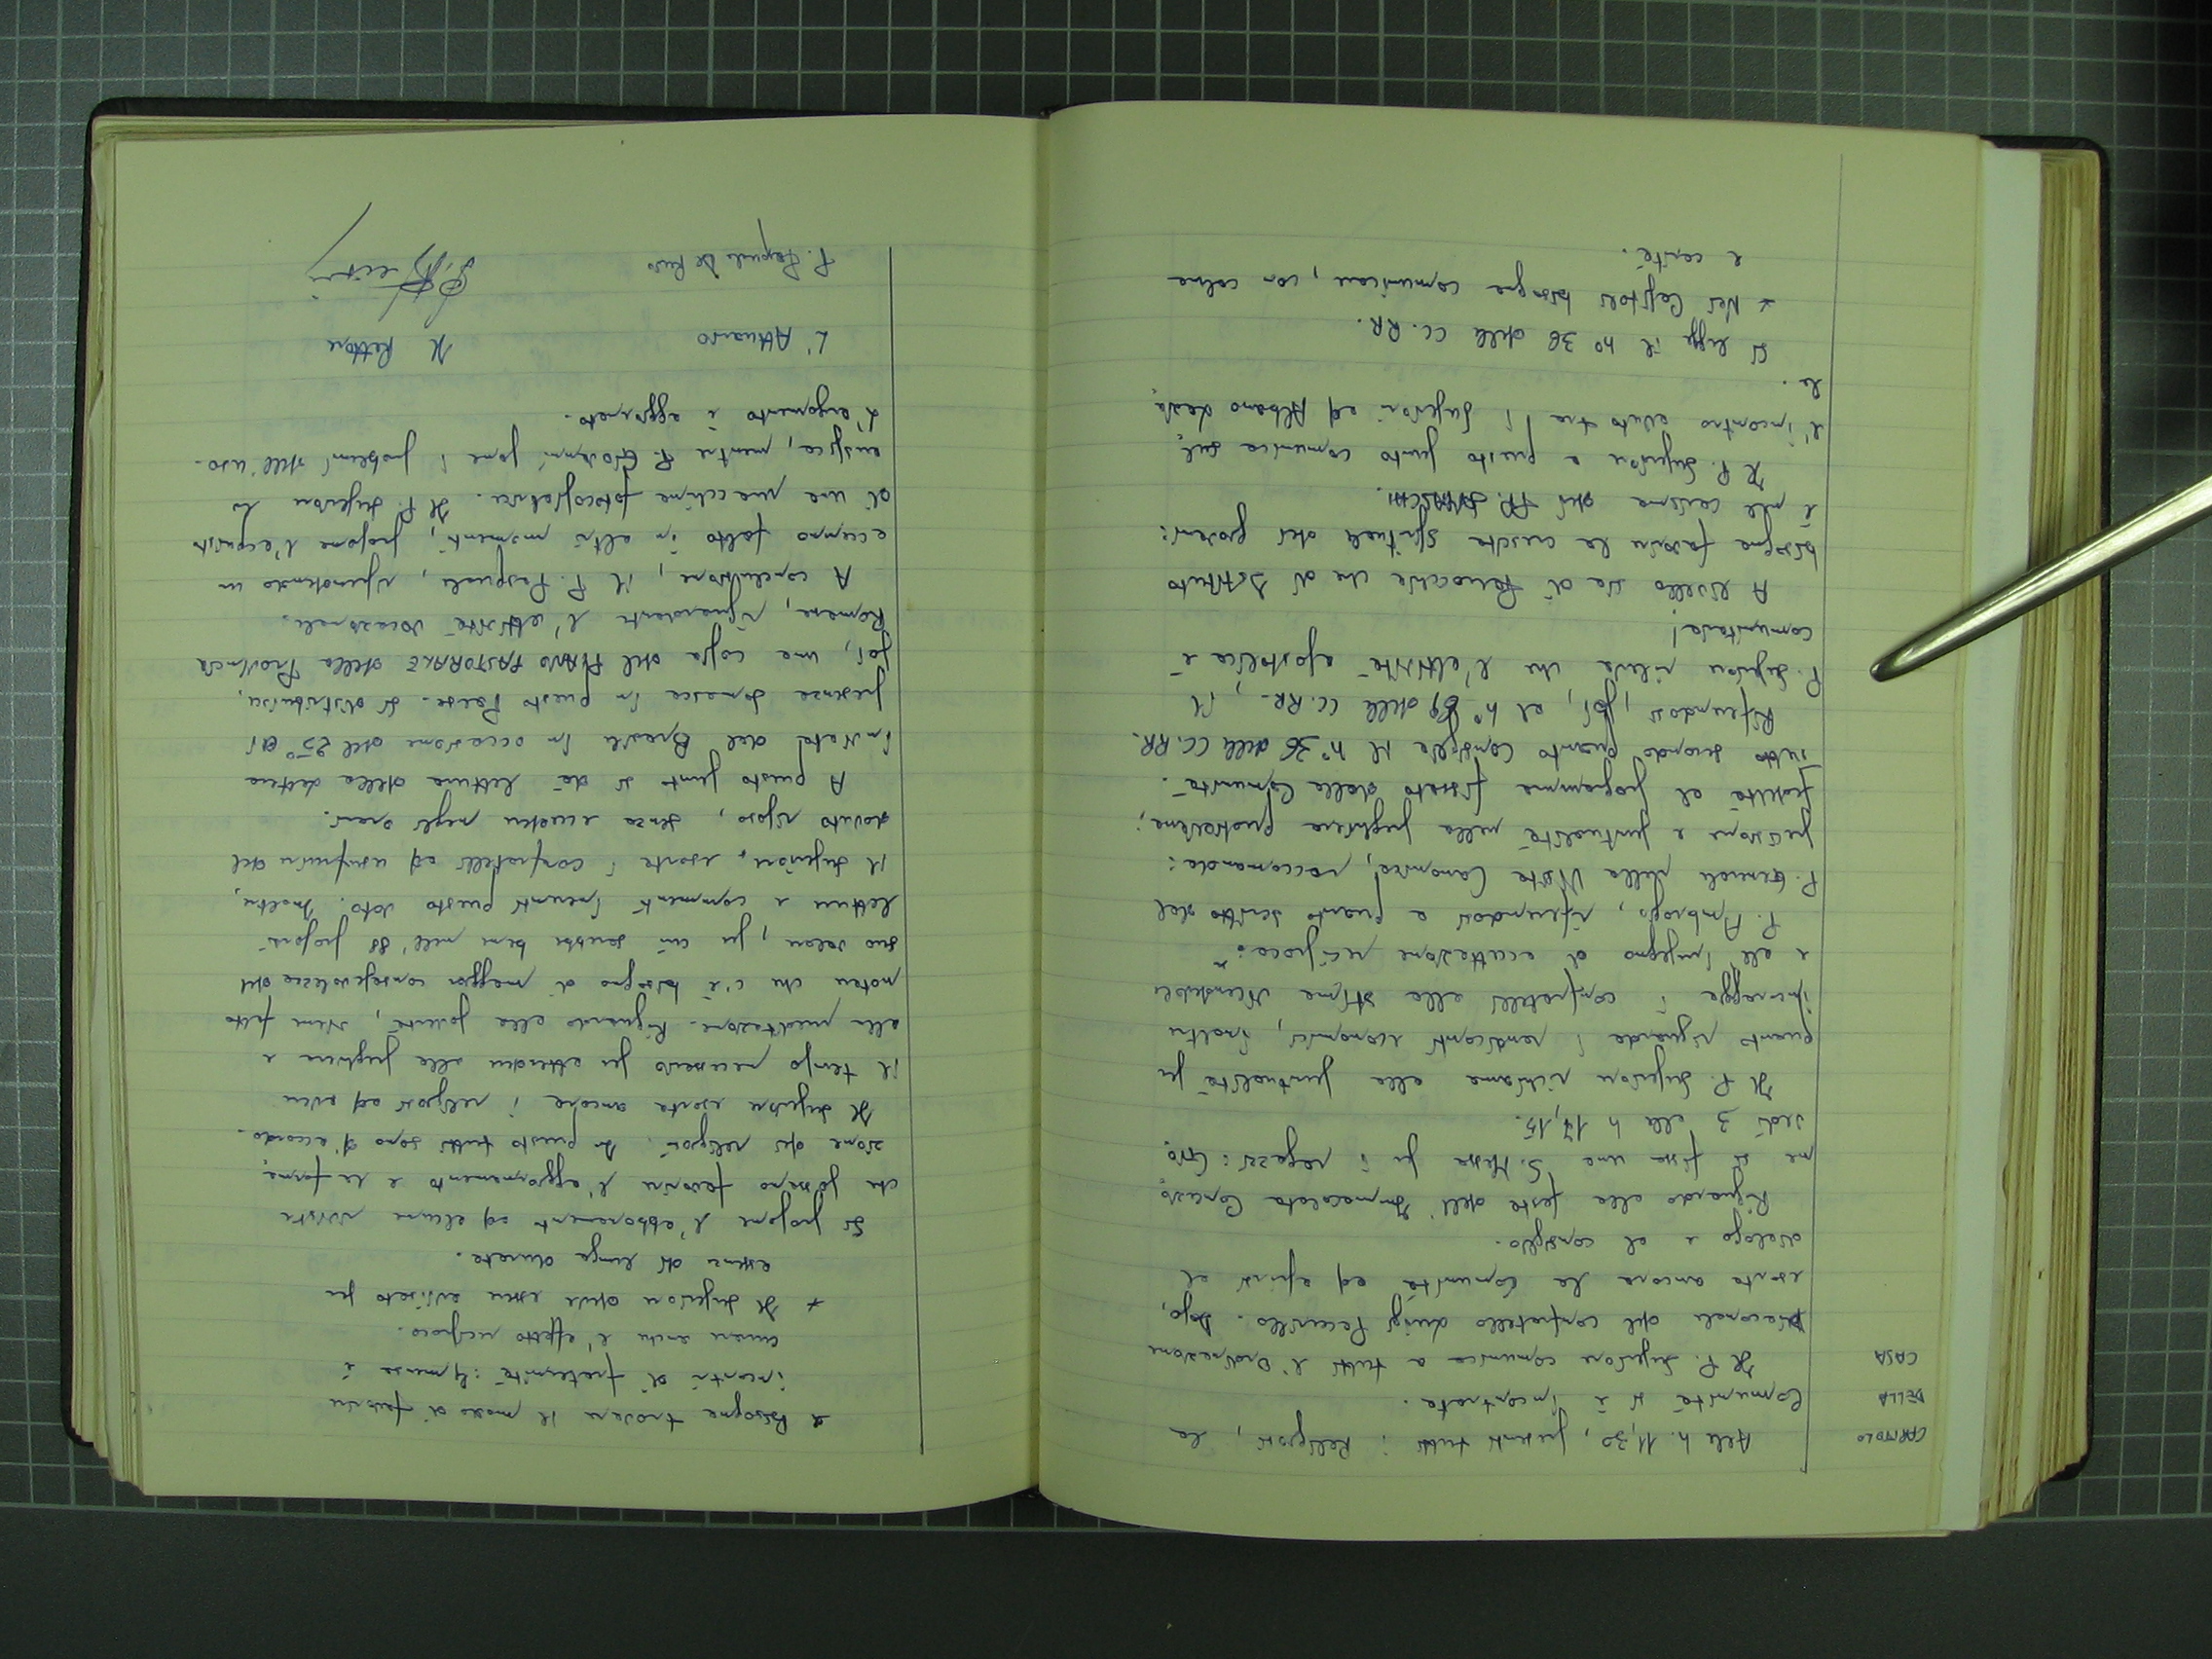 CAPITOLO
DELLA
CASA
Alle h. 11,30, presenti tutti i Religiosi, la
Comunità si è incontrata.
Il P. Superiore comunica a tutti l'Ordinazione
Diaconale del confratello Luigi Peciullo. Dopo,
esorta ancora la Comunità ad aprirsi al
dialogo e al consiglio.
Riguardo alla festa dell'Immacolata Concezio
ne si fissa una S. Messa per i ragazzi: Giove
dì 3 alle h 17,15.
Il P. Superiore richiama alla puntualità per
quanto riguarda i rendiconti economici, inoltre
incoraggia i confratelli alla stima vicendevole
e all'impegno di accettazione reciproca.
P. Ambrogio, riferendosi a quanto scritto dal
P. Generale nella Visita Canonica, raccomanda:
precisione e puntualità nella preghiera quotidiana;
fedeltà al programma fissato dalla Comunità.
Tutto secondo quanto consiglia il n° 36 delle CC.RR.
Riferendosi, poi, al n° 69 delle CC.RR., il
P. Superiore rileva che l'attività apostolica è
comunitaria!
A livello sia di Parrocchia che di Istituto
bisogna favorire la crescita spirituale dei giovani:
è nel carisma dei PP. SOMASCHI.
Il P. Superiore a questo punto comunica sul
l'incontro avuto tra i Superiori ad Albano Lazia
le.
Si legge il n° 38 delle CC.RR.
* Nei Capitoli bisogna comunicare, con calma
e carità.
* Bisogna trovare il modo di favorire
incontri di fraternità: la mensa è
curare anche l'affetto reciproco.
* Il Superiore chiede essere avvisato per
assenze di lunga durata.
Si propone l'abbonamento ad alcune riviste
che possano favorire l'aggiornamento e la forma
zione dei religiosi. In questo tutti sono d'accordo.
Il Superiore esorta ancora i religiosi ad avere
il tempo necessario per attendere alla preghiera e
alla meditazione. Riguardo alla povertà, viene fatto
notare che c'è bisogno di maggior consapevolezza del
suo valore, per cui sarebbe bene nell'88 proporsi
letture e commenti inerenti questo voto. Inoltre,
il Superiore, esorta i confratelli ad usufruire del
dovuto riposo, senza eccedere negli orari.
A questo punto si dà lettura della lettera
inviata dal Brasile in occasione del 25° di
presenza somasca in questo Paese. Si distribuisce,
poi, una copia del PIANO PASTORALE della Provincia
Romana, riguardante l'attività vocazionale.
A conclusione, il P. Pasquale, riprendendo un
accenno fatto in altri momenti, propone l'acquisto
di una macchina fotocopiatrice. Il P. Superiore lo
auspica, mentre P. Giovanni pone i problemi dell'uso.
L'argomento è aggiornato.
L'Attuario
Il Rettore
P. Pasquale De Ruvo